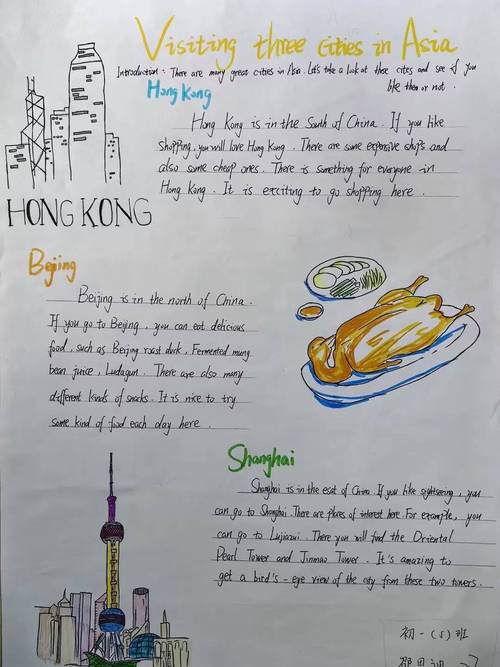 Visiting three cities in Asia
Introduction: There are many great cities in Asia. Let's take a look at these cites and see if you
like them or not.
Hong Kong
Hong Kong is in the South of China. If you like
shopping, you will love Hong Kong. There are some expensive shops and
also some cheap ones. There is something for everyone in
Hong Kong. It is exciting to go shopping here.
HONG KONG
Beijing
Beijing is in the north of China.
If you go to Beijing, you can eat delicious
food, such as Beijing roast duck, Fermented mung
bean juice, Ludagun. There are also many
different kinds of snacks. It is nice to try
some kind of food each day here.
Shanghai
Shanghai is in the esat of China. If you like sightseeing, you
can go to Shanghai. There are places of interest here. For example, you
can go to Lujiazui. There you will find the Oriental
Pearl Tower and Jinmao Tower. It's amazing to
get a bird's-eye view of the city from these two towers.
初一(5)班